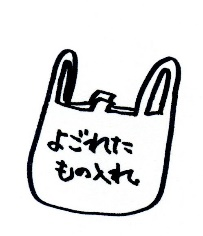 よごれた
もの入れ